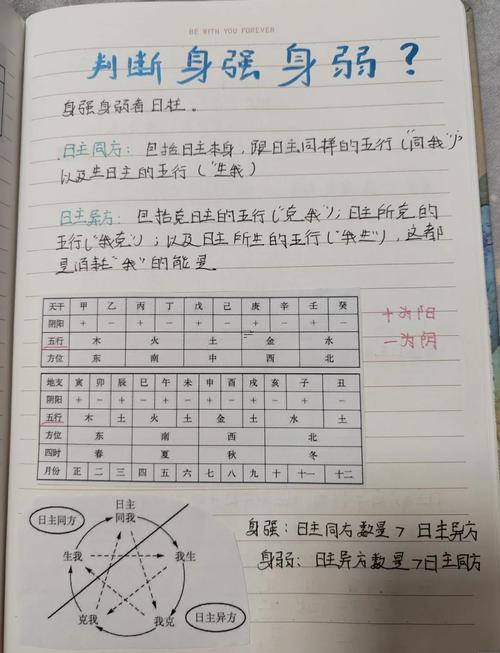 BE WITH YOU FOREVER
判断身强身弱？
身强身弱看日柱。
日主同方：包括日主本身，跟日主同样的五行（"同我"），
以及生日主的五行（"生我）
日主异方：包括克日主的五行（"克我"）；日主所克的
五行（"我克"）；以及日主所生的五行（"我生"），这都
是消耗"我"的能量
天干 甲 乙 丙 丁 戊 己 庚 辛 壬 癸
阴阳 + − + − + − + − + −
五行 木 火 土 金 水
方位 东 南 中 西 北
+为阳
一为阴
地支 寅 卯 辰 巳 午 未 申 酉 戌 亥 子 丑
阴阳 + − + − + − + − + − + −
五行 木 土 火 土 金 土 水 土
方位 东 南 西 北
四时 春 夏 秋 冬
月份 正 二 三 四 五 六 七 八 九 十 十一 十二
日主同方
日主
同我
生我
我生
克我
我克
日主异方
身强：日主同方数量>日主异方
身弱：日主异方数量>日主同方